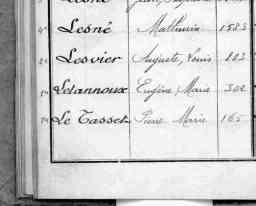 Lesné Mathurin 1583
Lesvier Auguste, Louis 883
Letannoux Eugène, Marie 302
Le Tasset Pierre Marie 165